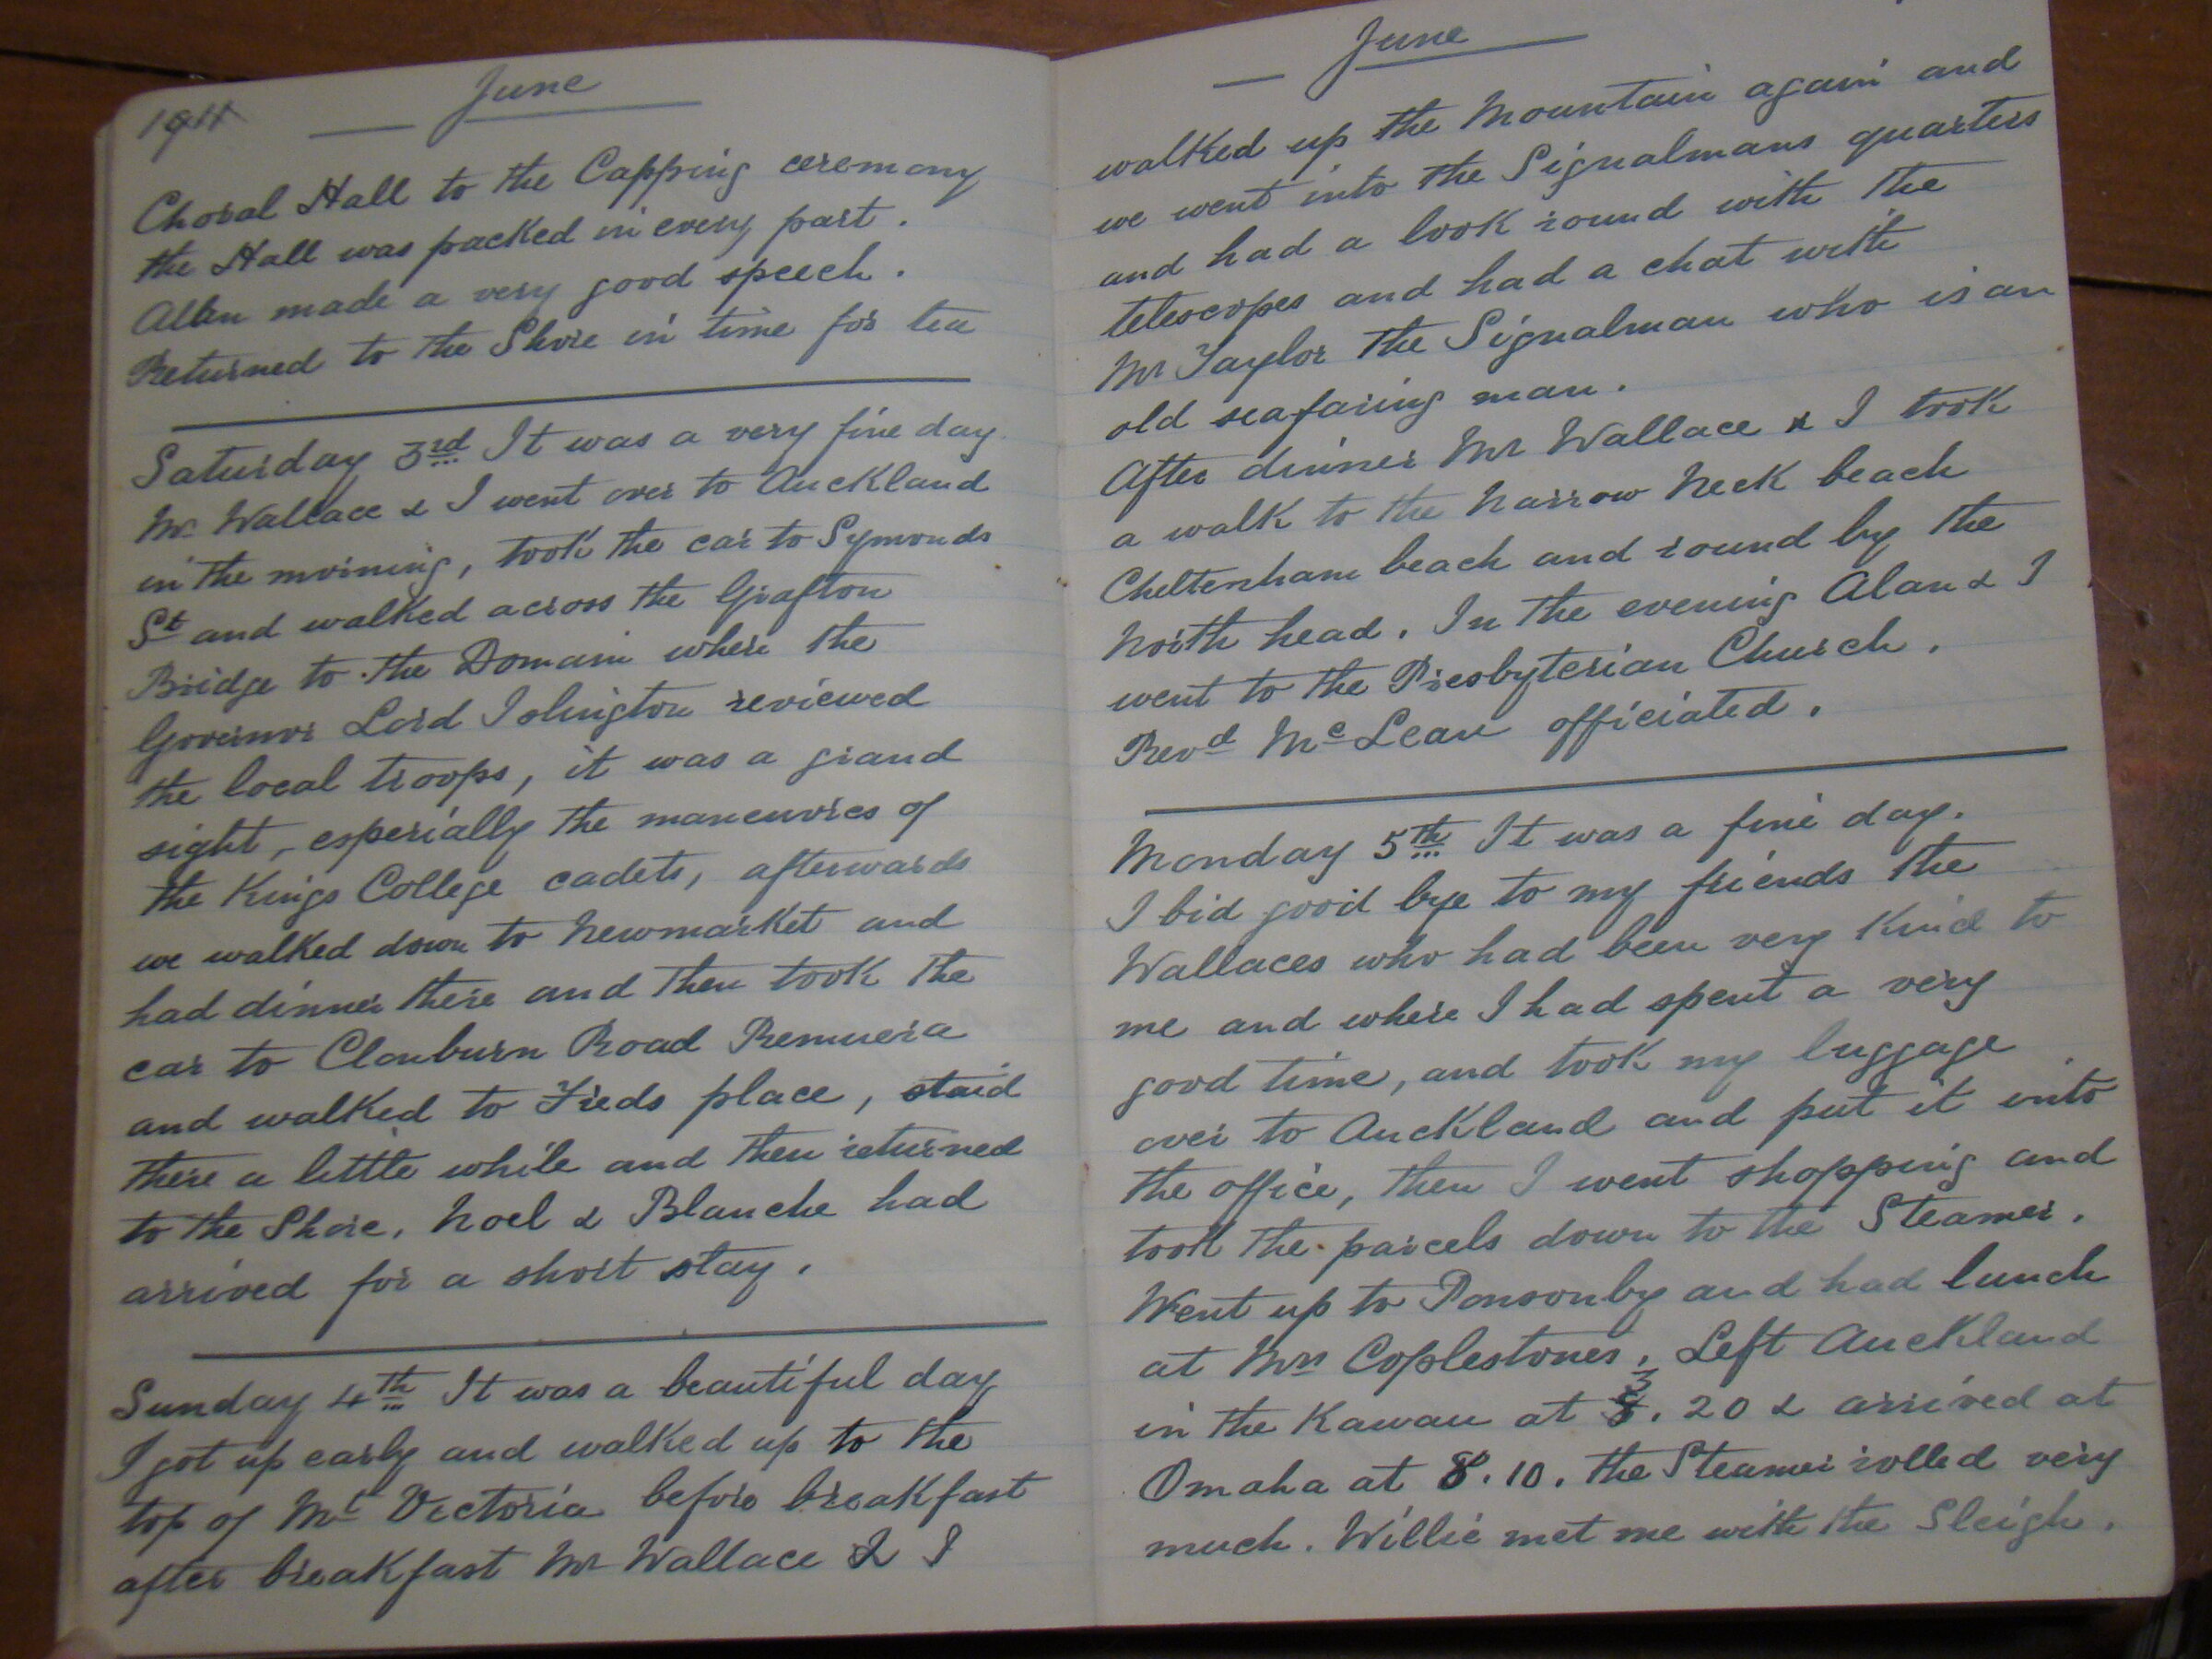 1911
June
Choral Hall to the Capping ceremony
the Hall was packed in every part.
Allen made a very good speech.
Returned to the Shore in time for tea
Saturday 3rd It was a very fine day
Mr Wallace & I went over to Auckland
in the morning, took the car to Symonds
St and walked across the Grafton
Bridge to the Domain where the
Governor Lord Islington reviewed
the local troops, it was a grand
sight, especially the maneuvres of
the Kings College cadets, afterwards
we walked down to Newmarket and
had dinner there and then took the
car to Clonburn Road Remuera
and walked to Freds place, staid
there a little while and then returned
to the Shore. Noel & Blanche had
arrived for a short stay.
Sunday 4th It was a beautiful day
I got up early and walked up to the
top of Mt Victoria before breakfast
after breakfast Mr Wallace & I
June
walked up the Mountain again and
we went into the Signalmans quarters
and had a look round with the
telescopes and had a chat with
Mr Taylor the Signalman who is an
old seafaring man.
After dinner Mr Wallace & I took
a walk to the Narrow Neck beach
Cheltenham beach and round by the
North head. In the evening Alan & I
went to the Presbyterian Church.
Revd McLean officiated.
Monday 5th It was a fine day.
I bid good bye to my friends the
Wallaces who had been very kind to
me and where I had spent a very
good time, and took my luggage
over to Auckland and put it into
the office, then I went shopping and
took the parcels down to the Steamer.
Went up to Ponsonby and had lunch
at Mrs Coplestones. Left Auckland
in the Kawau at 3.20 & arrived at
Omaha at 8.10. the Steamer rolled very
much. Willie met me with the Sleigh.